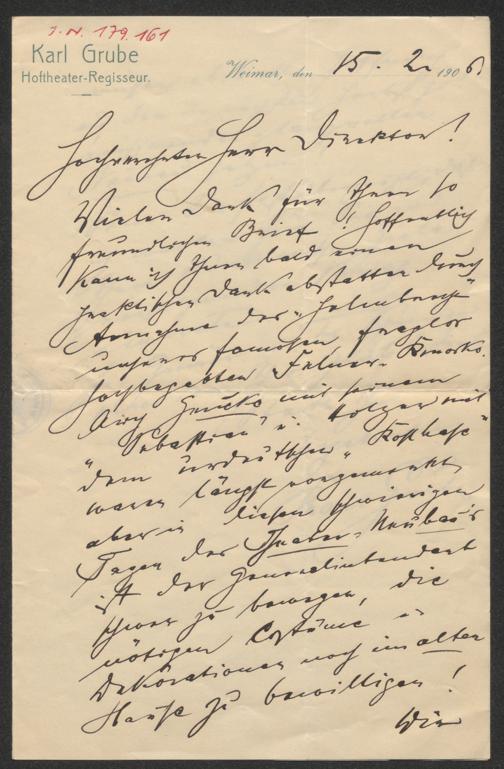 I.N. 179.161
Karl Grube
Hoftheater-Regisseur.
Weimar, den 15. 2. 1906.
Hochverehrter Herr Direktor!
Vielen Dank für Ihren so
freundlichen Brief! Hoffentlich
kann ich Ihnen bald einen
praktischen Dank abstatten durch
Annahme des
unseres famosen, fraglos
hochbegabten
Auch mit seinem
"Sebastian" u. Holger mit
dem urdeutschen
waren längst vorgemerkt,
aber in diesen schwierigen
Tagen des Theater-Neubau's
ist der Generalintendant
schwer zu bewegen, die
nötigen Costüme u.
Dekorationen noch im alten
Hause zu bewilligen!
Wir